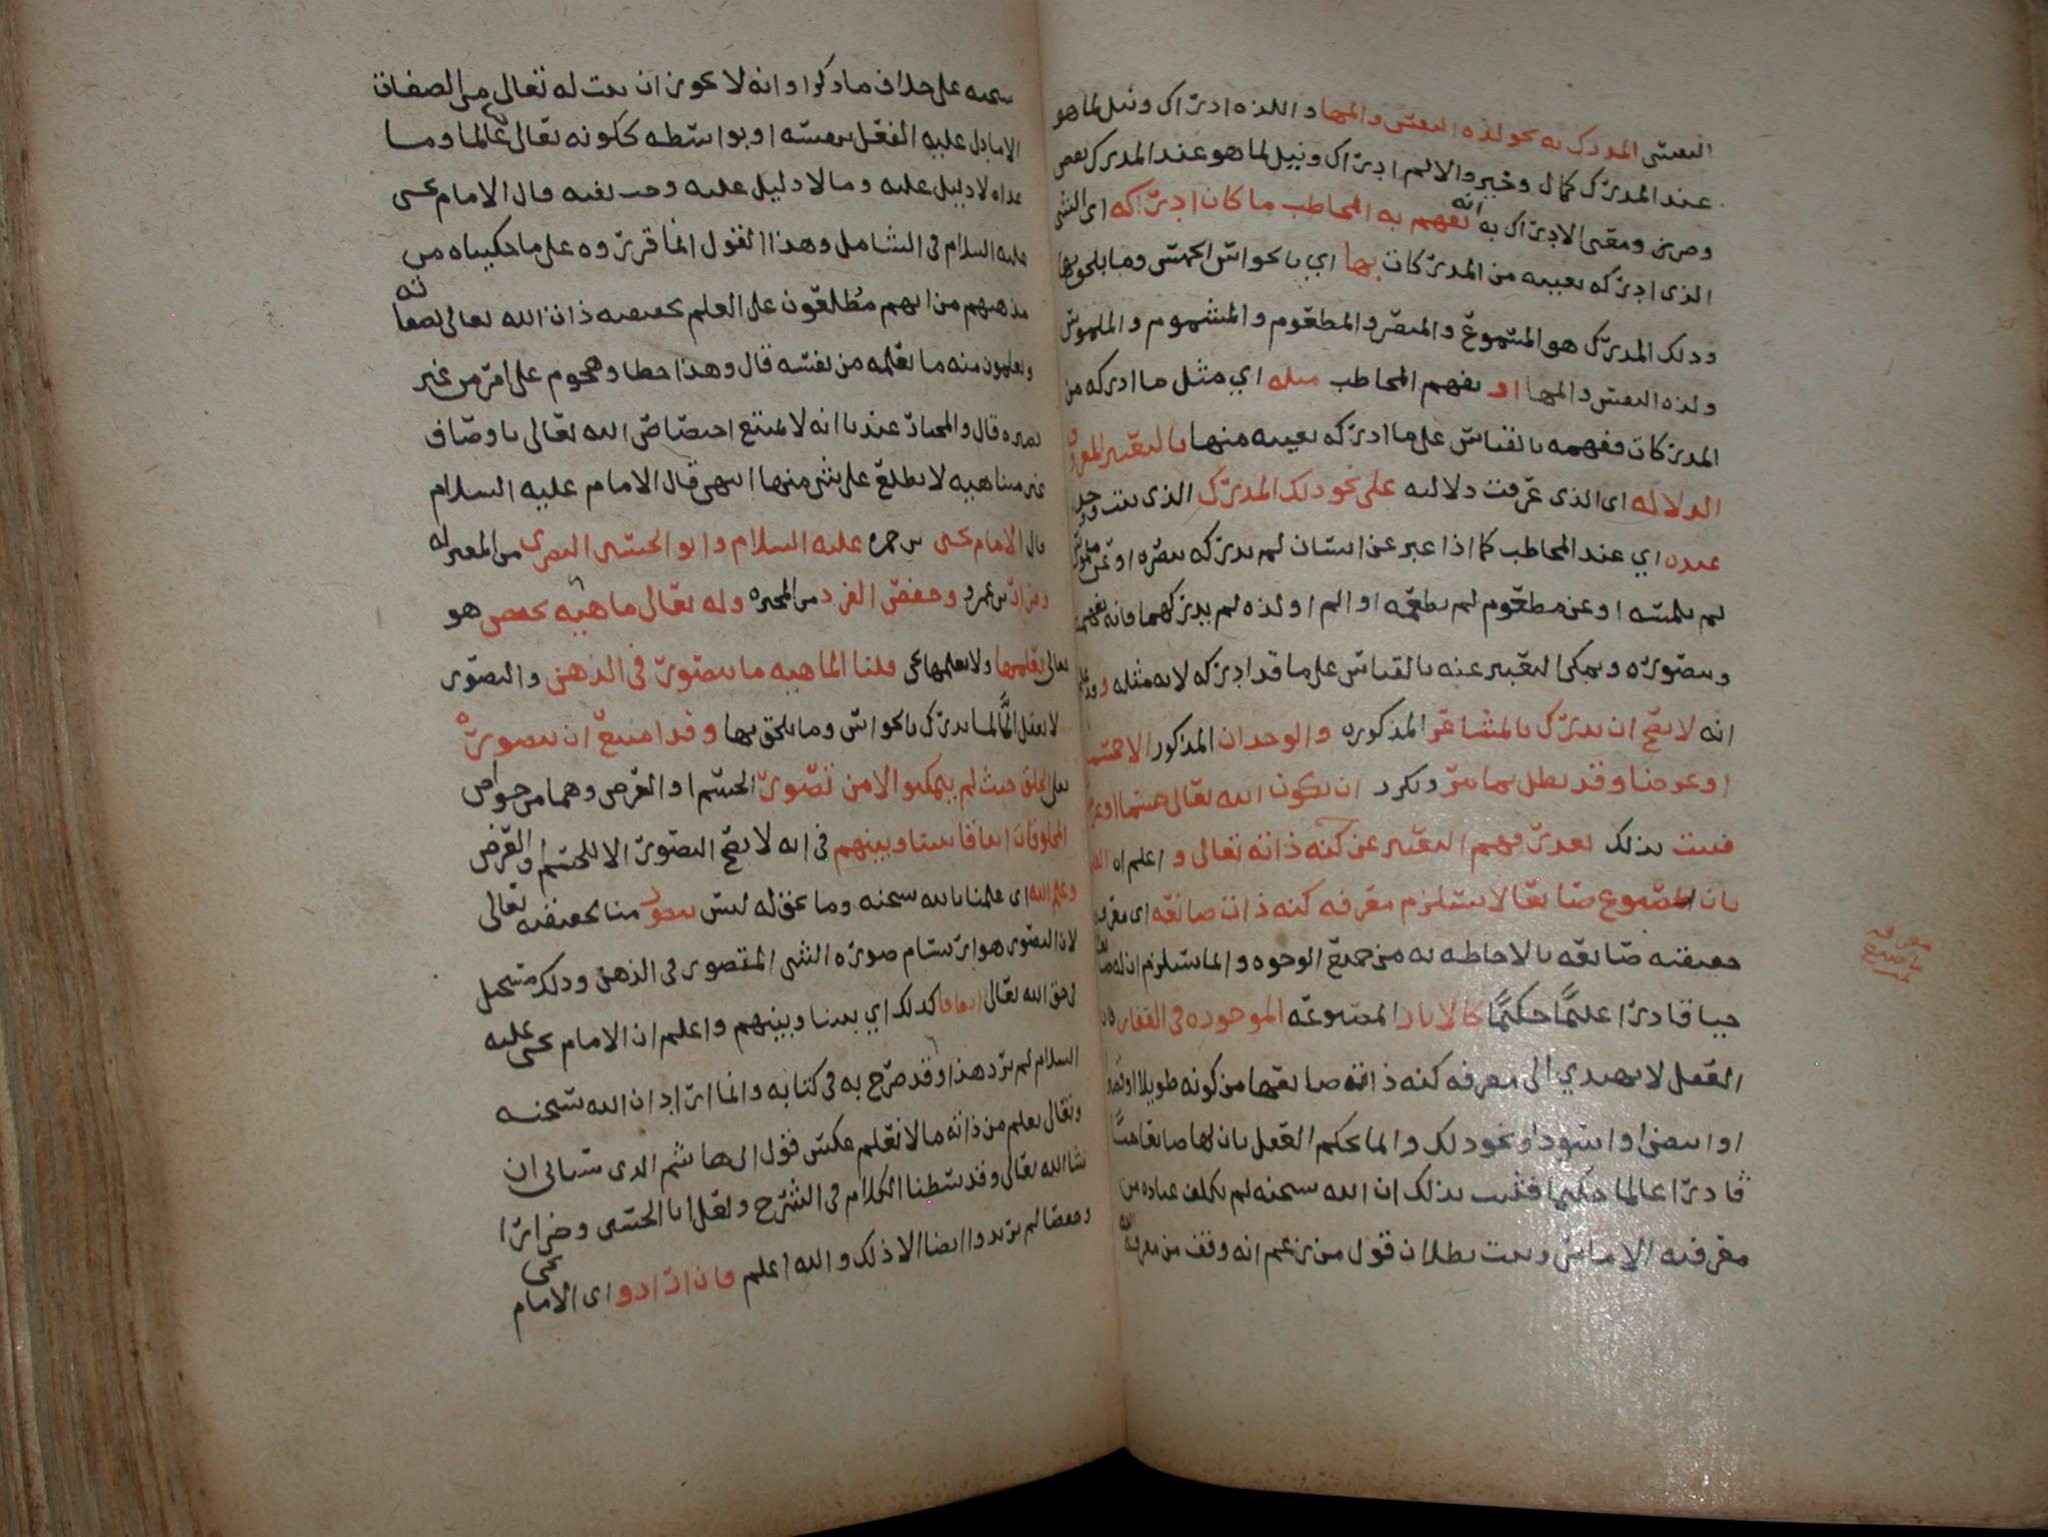 النفس المدرك به نحو لذة النفس والمها واللذة ادراك ونيل لما هو
عند المدرك كمال وخير والالم ادراك ونيل لما هو عند المدرك نقص
وضرر ومعنى الادراك به انه تفهم به المخاطب ما كان ادراكه اي الشي
الذي ادركه بعينه من المدركات بها اي بالحواس الخمس وما يلحق بها
وذلك المدرك هو المسموع والمبصر والمطعوم والمشموم والملموس
ولذة النفس والمها او يفهم المخاطب مثله اي مثل ما ادركه من
المدركات ففهمه بالقياس على ما ادركه بعينه منها بالتعبير المعروف
الدلالة اي الذي عرفت دلالته على نحو ذلك المدرك الذي
عنده اي عند المخاطب كما اذا عبر عن انسان لم يدركه ببصره او عن ملموس
لم يلمسه او عن مطعوم لم يطعمه او الم او لذة لم يدركهما فانه يفهمه
ويتصوره ويمكن التعبير عنه بالقياس على ما قد ادركه لانه مثله وقد
انه لا يصح ان يدرك بالمشاعر المذكورة والوجدان المذكور الا جسم
او عرض وقد بطل بما مر وتكرر ان يكون الله تعالى جسما او عرض
فثبت بذلك تعذر فهم التعبير عن كنه ذاته تعالى واعلم ان العلم
بان للمصنوع صانعا لا يستلزم معرفة كنه ذات صانعه اي معرفة
حقيقة صانعه بالاحاطة به من جميع الوجوه وانما يستلزم ان له صانعا
حيا قادرا عليما حكيما كالاثار المصنوعة الموجودة في القفار فان
العقل لا يهتدي الى معرفة كنه ذات صانعها من كونه طويلا او قصيرا
او ابيض او اسود او نحو ذلك وانما يحكم العقل بان لها صانعا حيا
قادرا عالما حكيما فثبت بذلك ان الله سبحنه لم يكلف عباده من
معرفته الا ما وثبت بطلان قول من زعم انه وقف من معرفة الله
معرفة
سبحنه على خلاف ما ذكروا وانه لا يجوز ان يثبت له تعالى من الصفات
الا ما دل عليه الفعل بنفسه او بواسطة ككونه تعالى عالما وما
عداه لا دليل عليه وما لا دليل عليه وجب نفيه قال الامام يحيى
عليه السلام في الشامل وهذا القول انما قرروه على ما حكيناه من
مذهبهم من انهم مطلعون على العلم بحقيقة ذات الله تعالى وصفاته
ويعلمون منه ما يعلمه من نفسه قال وهذا خطا وهجوم على امر من غير
بصيرة قال والمختار عندنا انه لا يمتنع اختصاص الله تعالى باوصاف
غير متناهية لا يطلع على شي منها انتهى قال الامام عليه السلام
قال الامام يحيى بن حمزة عليه السلام وابو الحسين البصري من المعتزلة
وضرار بن عمرو وحفص الفرد من المجبرة وله تعالى ماهية يختص هو
تعالى بعلمها ولا نعلمها نحن قلنا الماهية ما يتصور في الذهن والتصور
لا يعقل الا لما يدرك بالحواس وما يلحق بها وقد امتنع ان يتصوره
تعالى الخلق حيث لم يتمكنوا الا من تصور الجسم او العرض وهما من خواص
المخلوقات اتفاقا بيننا وبينهم في انه لا يصح التصور الا للجسم والعرض
وعلم الله اي علمنا بالله سبحنه وما يحق له ليس بتصور منا لحقيقته تعالى
لان التصور هو ارتسام صورة الشي المتصور في الذهن وذلك مستحيل
في حق الله تعالى اتفاقا كذلك اي بيننا وبينهم واعلم ان الامام يحيى عليه
السلام لم يرد هذا وقد صرح به في كتابه وانما اراد ان الله سبحنه
وتعالى يعلم من ذاته ما لا نعلم عكس قول ابي هاشم الذي سياتي ان
شا الله تعالى وقد بسطنا الكلام في الشرح ولعل ابا الحسين وضرارا
وحفصا لم يريدوا ايضا الا ذلك والله اعلم فان ارادوا اي الامام يحيى